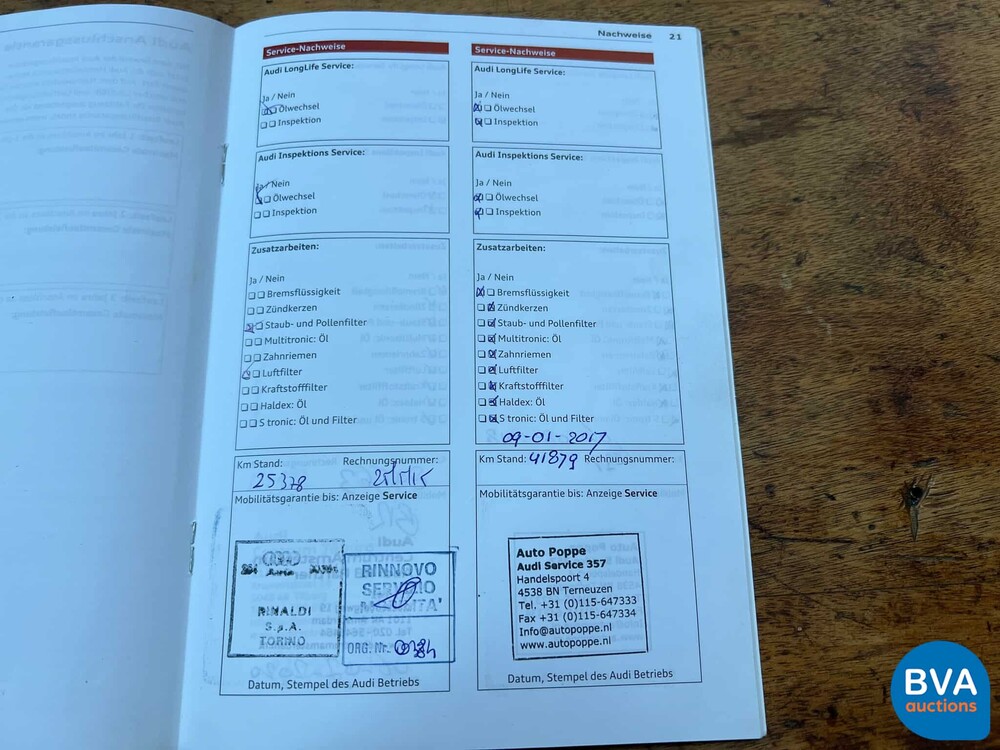 Nachweise 21
Service-Nachweise
Audi LongLife Service:
Ja / Nein
Ölwechsel
Inspektion
Audi Inspektions Service:
Ja / Nein
Ölwechsel
Inspektion
Zusatzarbeiten:
Ja / Nein
Bremsflüssigkeit
Zündkerzen
Staub- und Pollenfilter
Multitronic: Öl
Zahnriemen
Luftfilter
Kraftstofffilter
Haldex: Öl
S tronic: Öl und Filter
Km Stand: Rechnungsnummer:
25378
Mobilitätsgarantie bis: Anzeige Service
RINALDI
S.p.A.
TORINO
RINNOVO
SERVIZIO
ORG. Nr.
Datum, Stempel des Audi Betriebs
Service-Nachweise
Audi LongLife Service:
Ja / Nein
Ölwechsel
Inspektion
Audi Inspektions Service:
Ja / Nein
Ölwechsel
Inspektion
Zusatzarbeiten:
Ja / Nein
Bremsflüssigkeit
Zündkerzen
Staub- und Pollenfilter
Multitronic: Öl
Zahnriemen
Luftfilter
Kraftstofffilter
Haldex: Öl
S tronic: Öl und Filter
09-01-2017
Km Stand: 41879 Rechnungsnummer:
Mobilitätsgarantie bis: Anzeige Service
Auto Poppe
Audi Service 357
Handelspoort 4
4538 BN Terneuzen
Tel. +31 (0)115-647333
Fax +31 (0)115-647334
Info@autopoppe.nl
www.autopoppe.nl
Datum, Stempel des Audi Betriebs
BVA
auctions